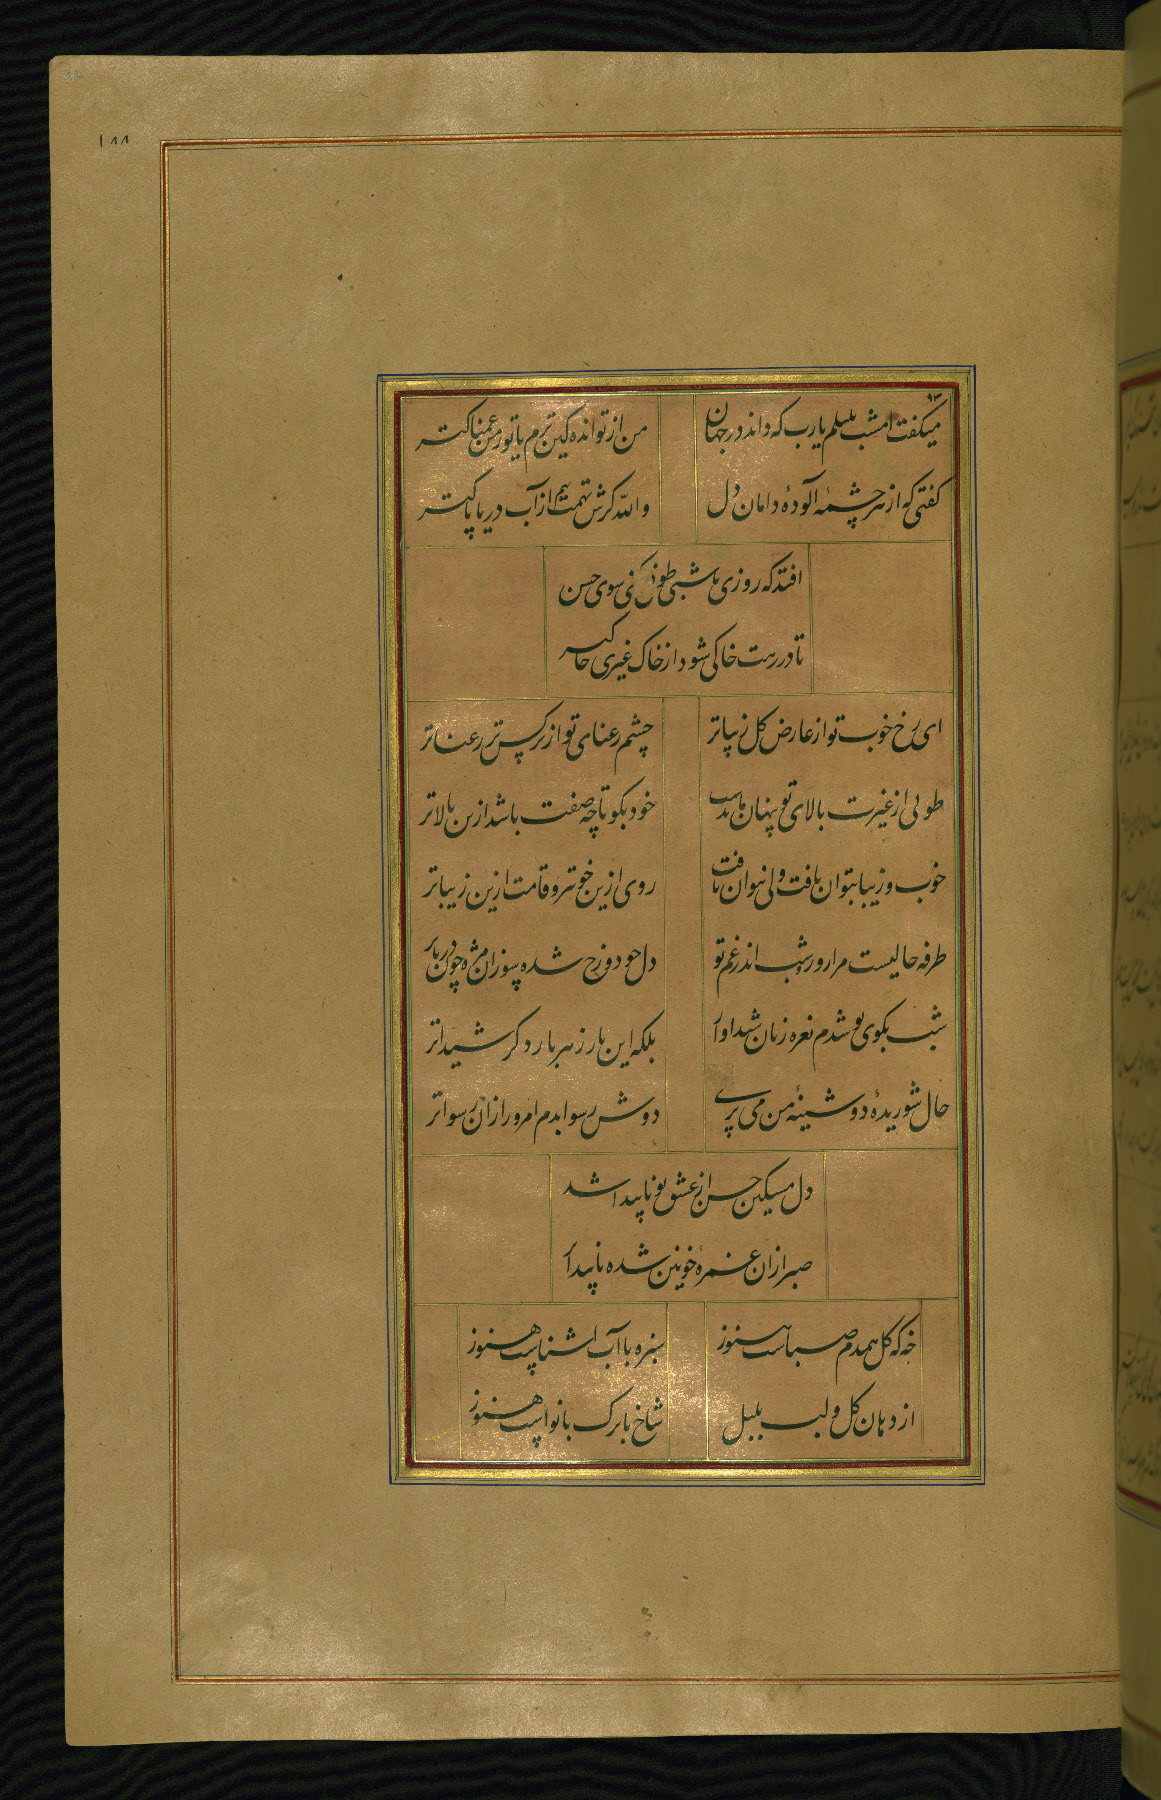 ١٨٨
٩٣
میکفت امشب بلبلم یارب که داند در جهان من از تو اندهکین ترم یا تو ز من غمناکتر
کفتی که از هر چشمهٔ آلودهٔ دامان دل والله کرش تهمت نهم از آب دریا پاکتر
افتد که روزی یا شبی کنی سوی حسن
تا در رهت خاکی شود از خاک غیری خاکتر
ای رخ خوب تو از عارض کل زیباتر چشم رعنای تو از نرکس تر رعناتر
طوبی از غیرت بالای تو پنهان ماندست خود بکو تا چه صفت باشد ازین بالاتر
خوب و زیبا بتوان یافت ولی نتوان یافت روی ازین خوبتر و قامت ازین زیباتر
طرفه حالیست مرا روز و شب اندر غم تو دل چو دوزخ شده سوزان مژه چون دریاتر
شب بکوی تو شدم نعره زنان شیداوار بلکه این بار ز هر بار دکر شیداتر
حال شوریدهٔ دوشینهٔ من می پرسی دوش رسوا بدم امروز از آن رسواتر
دل مسکین حسن از عشق تو ناپیدا شد
صبر از آن غمزهٔ خونین شده ناپیداتر
خه که کل همدم صباست هنوز سبزه با آب آشناست هنوز
از دهان کل و لب بلبل شاخ با برک با نواست هنوز